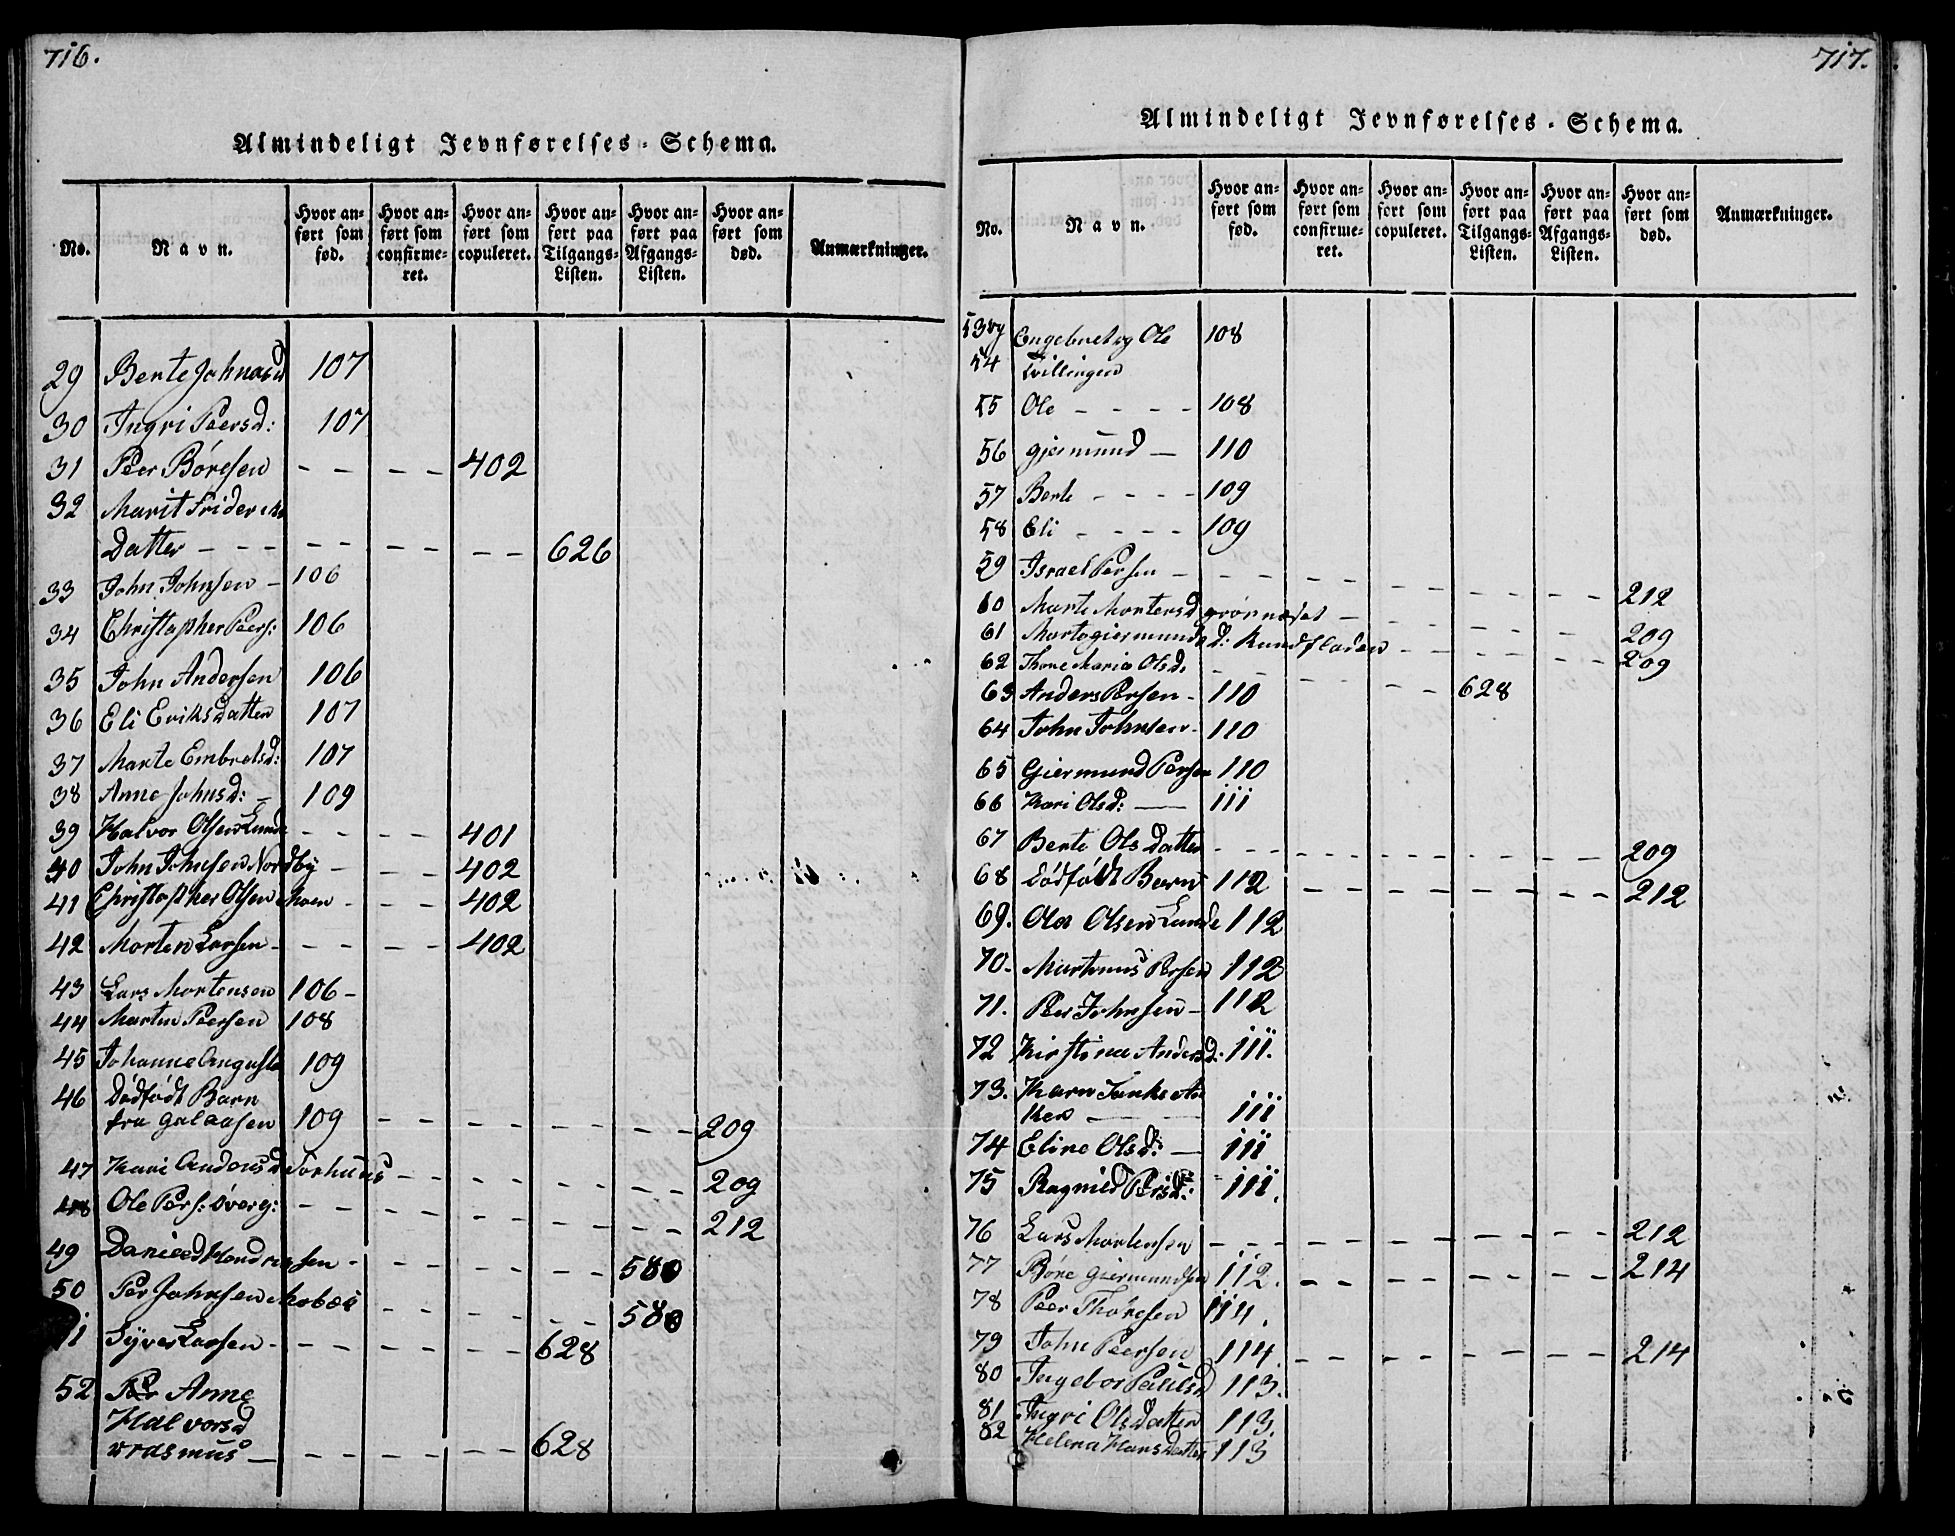 716.
Almindeligt Jevnførelses-Schema.
No.
Navn.
Hvor anført som fød.
Hvor anført som confirmeret.
Hvor anført som copuleret.
Hvor anført paa Tilgangs-Listen.
Hvor anført paa Afgangs-Listen.
Hvor anført som død.
Anmærkninger.
29 Berte Johnasd 107
30 Ingri Peersd: 107
31 Peer Børesen - - - - 402
32 Marit Friderichs
Datter - - - - - - - - - 626
33 John Johnsen - 106
34 Christopher Peers: 106
35 John Andersen 106
36 Eli Eriksdatter 107
37 Marte Embretsd: 107
38 Anne Johnsd: - 109
39 Halvor Olsen Lunde - - - - 401
40 John Johnsen Nordby - - - 402
41 Christopher Olsen Moen - - - 402
42 Morten Larsen - - - - - 402
43 Lars Mortensen 106 -
44 Martin Peersen 108
45 Johanne Augusta 109
46 Dødfødt Barn
fra Galaasen 109 - - - - - - - - 209
47 Kari Andersd Torhuus - - - - - - - - 209
48 Ole Pers: Øverg: - - - - - - - - - - 212
49 Daniel Hendrigsen - - - - - - - 580
50 Per Johnsen Mobæk - - - - - - 580
51 Syver Larsen - - - - - - - 628
52 Anne
Halvorsd
Erasmus - - - - - - - 628
717.
Almindeligt Jevnførelses-Schema.
No.
Navn.
Hvor anført som fød.
Hvor anført som confirmeret.
Hvor anført som copuleret.
Hvor anført paa Tilgangs-Listen.
Hvor anført paa Afgangs-Listen.
Hvor anført som død.
Anmærkninger.
53 og Engebret og Ole 108
54 Tvillinger
55 Ole - - - - 108
56 Gjermund - 110
57 Berte - - - - 109
58 Eli - - - - 109
59 Israel Persen - - - - - - - - - - - 212
60 Marte Mortensd Grønnæset - - - - - - 209
61 Marte Giermundsd: Rundfloden - - - - - 209
62 Thore Maria Olsd. - - - - - - 628
63 Anders Persen - 110
64 John Johnsen - 110
65 Giermund Persen 110
66 Kari Olsd: — 111
67 Berte Olsdatter - - - - - - - - - - 209
68 Dødfødt Barn 112 - - - - - - - - 212
69. Ola Olsen Lunde 112
70. Martinus Persen 112
71. Peer Johnsen - 112
72 Kirstina Andersd: 111.
73. Karn
ken — 111
74 Eline Olsd: — 111
75 Ragnild Persd: - 111.
76 Lars Mortensen - - - - - - - - - - 212
77 Børe Giermundsen 112. - - - - - - - - 214
78 Peer Thoresen 114.
79 John Peersen 114. - - - - - - - - 214
80 Ingebor Paulsd 113.
81 Ingri Olsdatter 113.
82 Helena Hansdatter 113